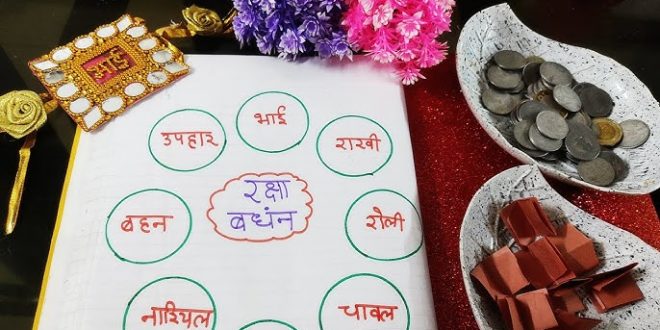 भाई
भाई
उपहार
राखी
रक्षा
बधंन
बहन
रोली
नारियल
चावल